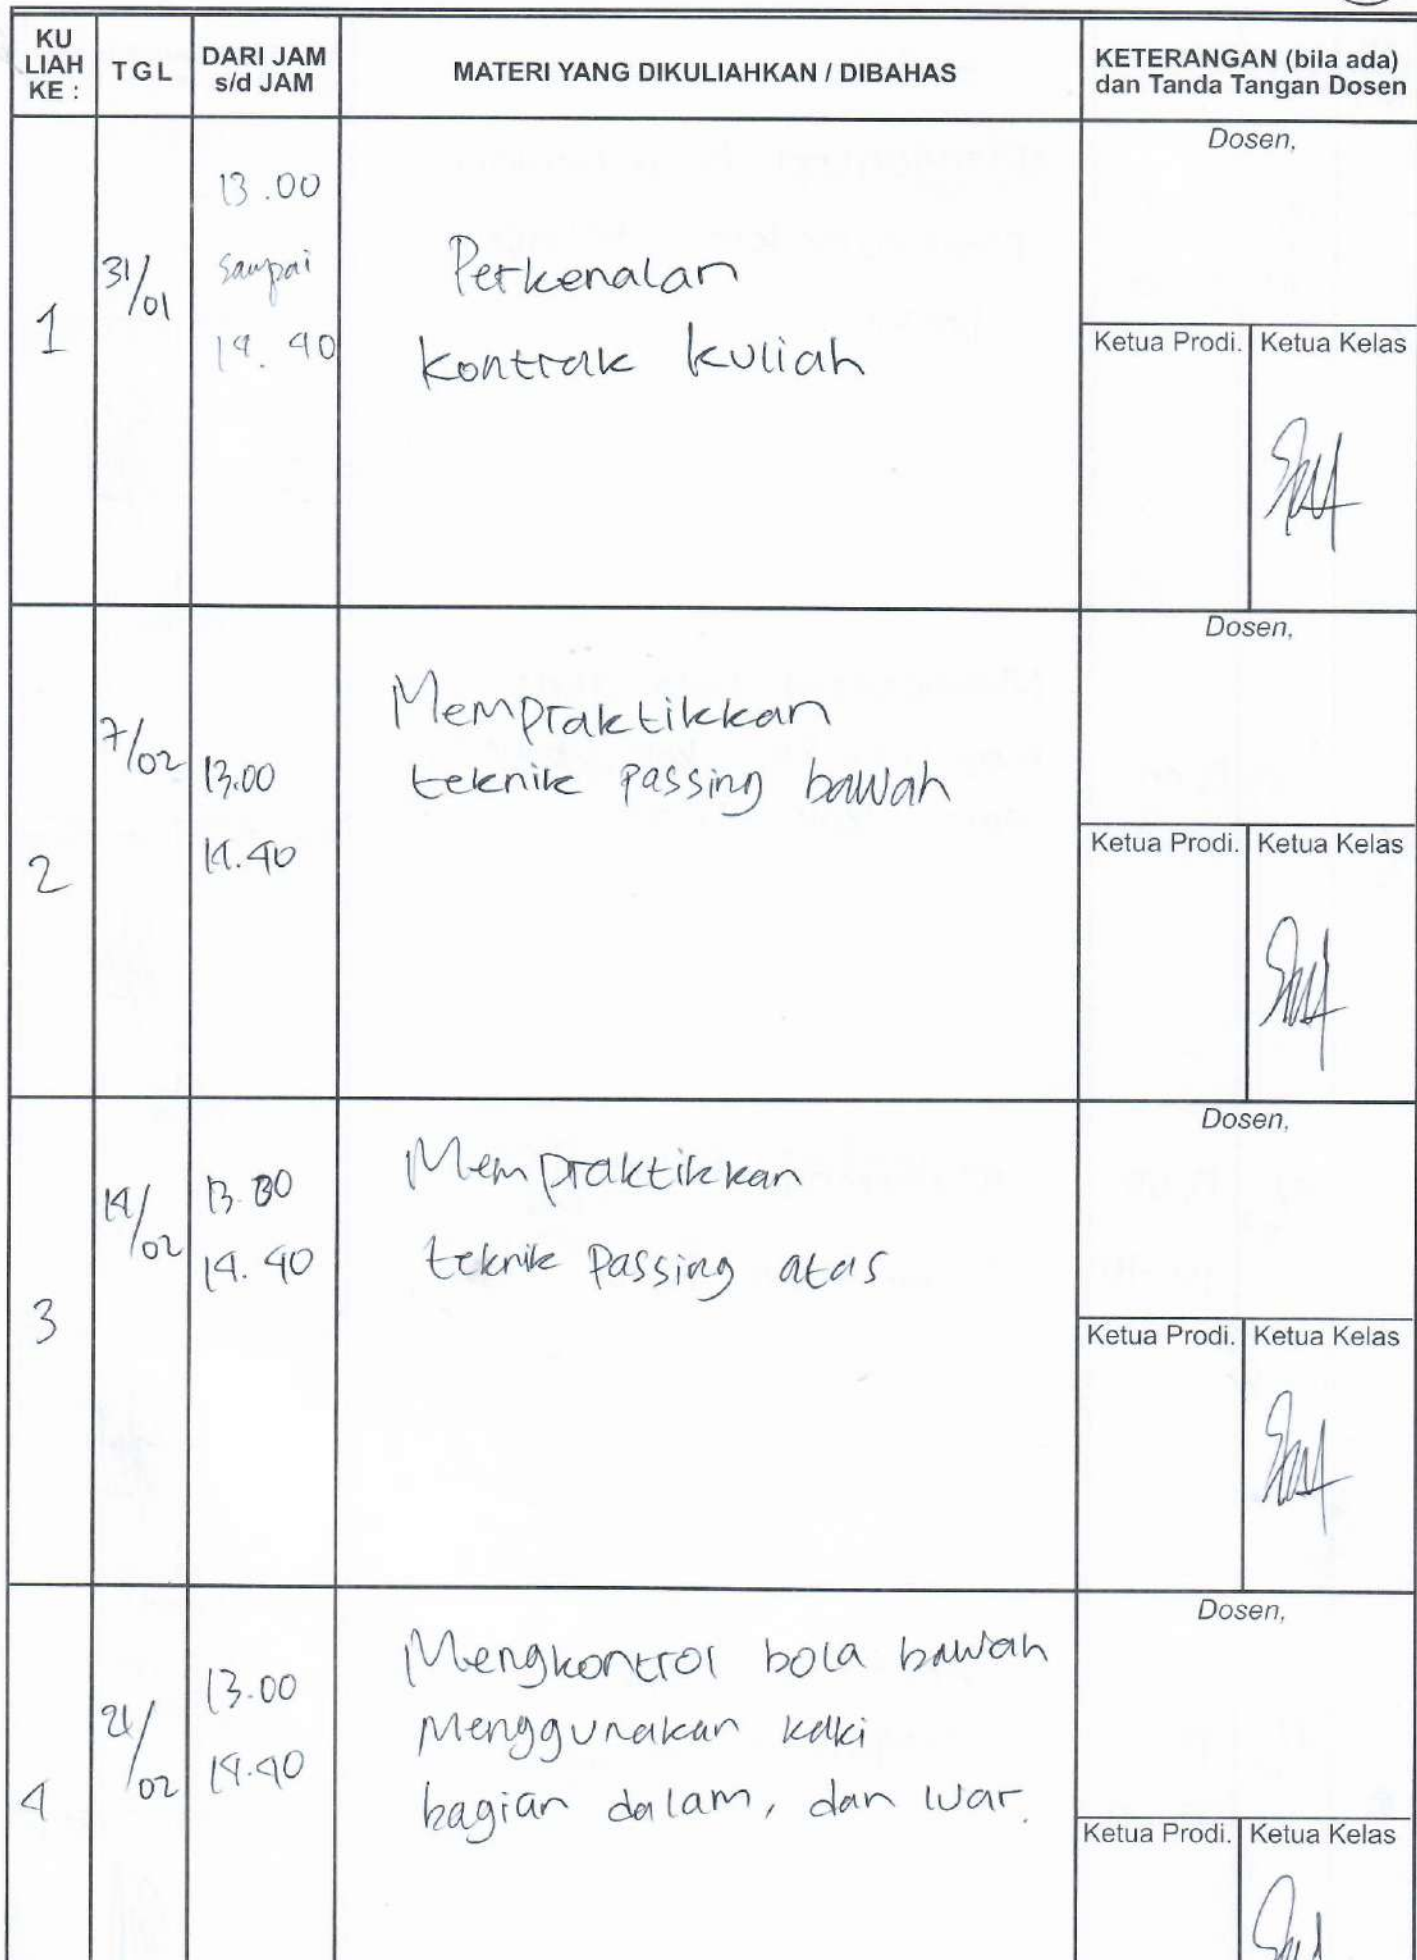 KU LIAH KE :
TGL
DARI JAM s/d JAM
MATERI YANG DIKULIAHKAN / DIBAHAS
KETERANGAN (bila ada) dan Tanda Tangan Dosen
1
31/01
13.00
sampai
14.40
Perkenalan
kontrak kuliah
Dosen,
Ketua Prodi.
Ketua Kelas
2
7/02
13.00
14.40
Mempraktikkan
teknik passing bawah
Dosen,
Ketua Prodi.
Ketua Kelas
3
14/02
13.00
14.40
Mempraktikkan
teknik passing atas
Dosen,
Ketua Prodi.
Ketua Kelas
4
21/02
13.00
14.40
Mengkontrol bola bawah
menggunakan kaki
bagian dalam, dan luar.
Dosen,
Ketua Prodi.
Ketua Kelas